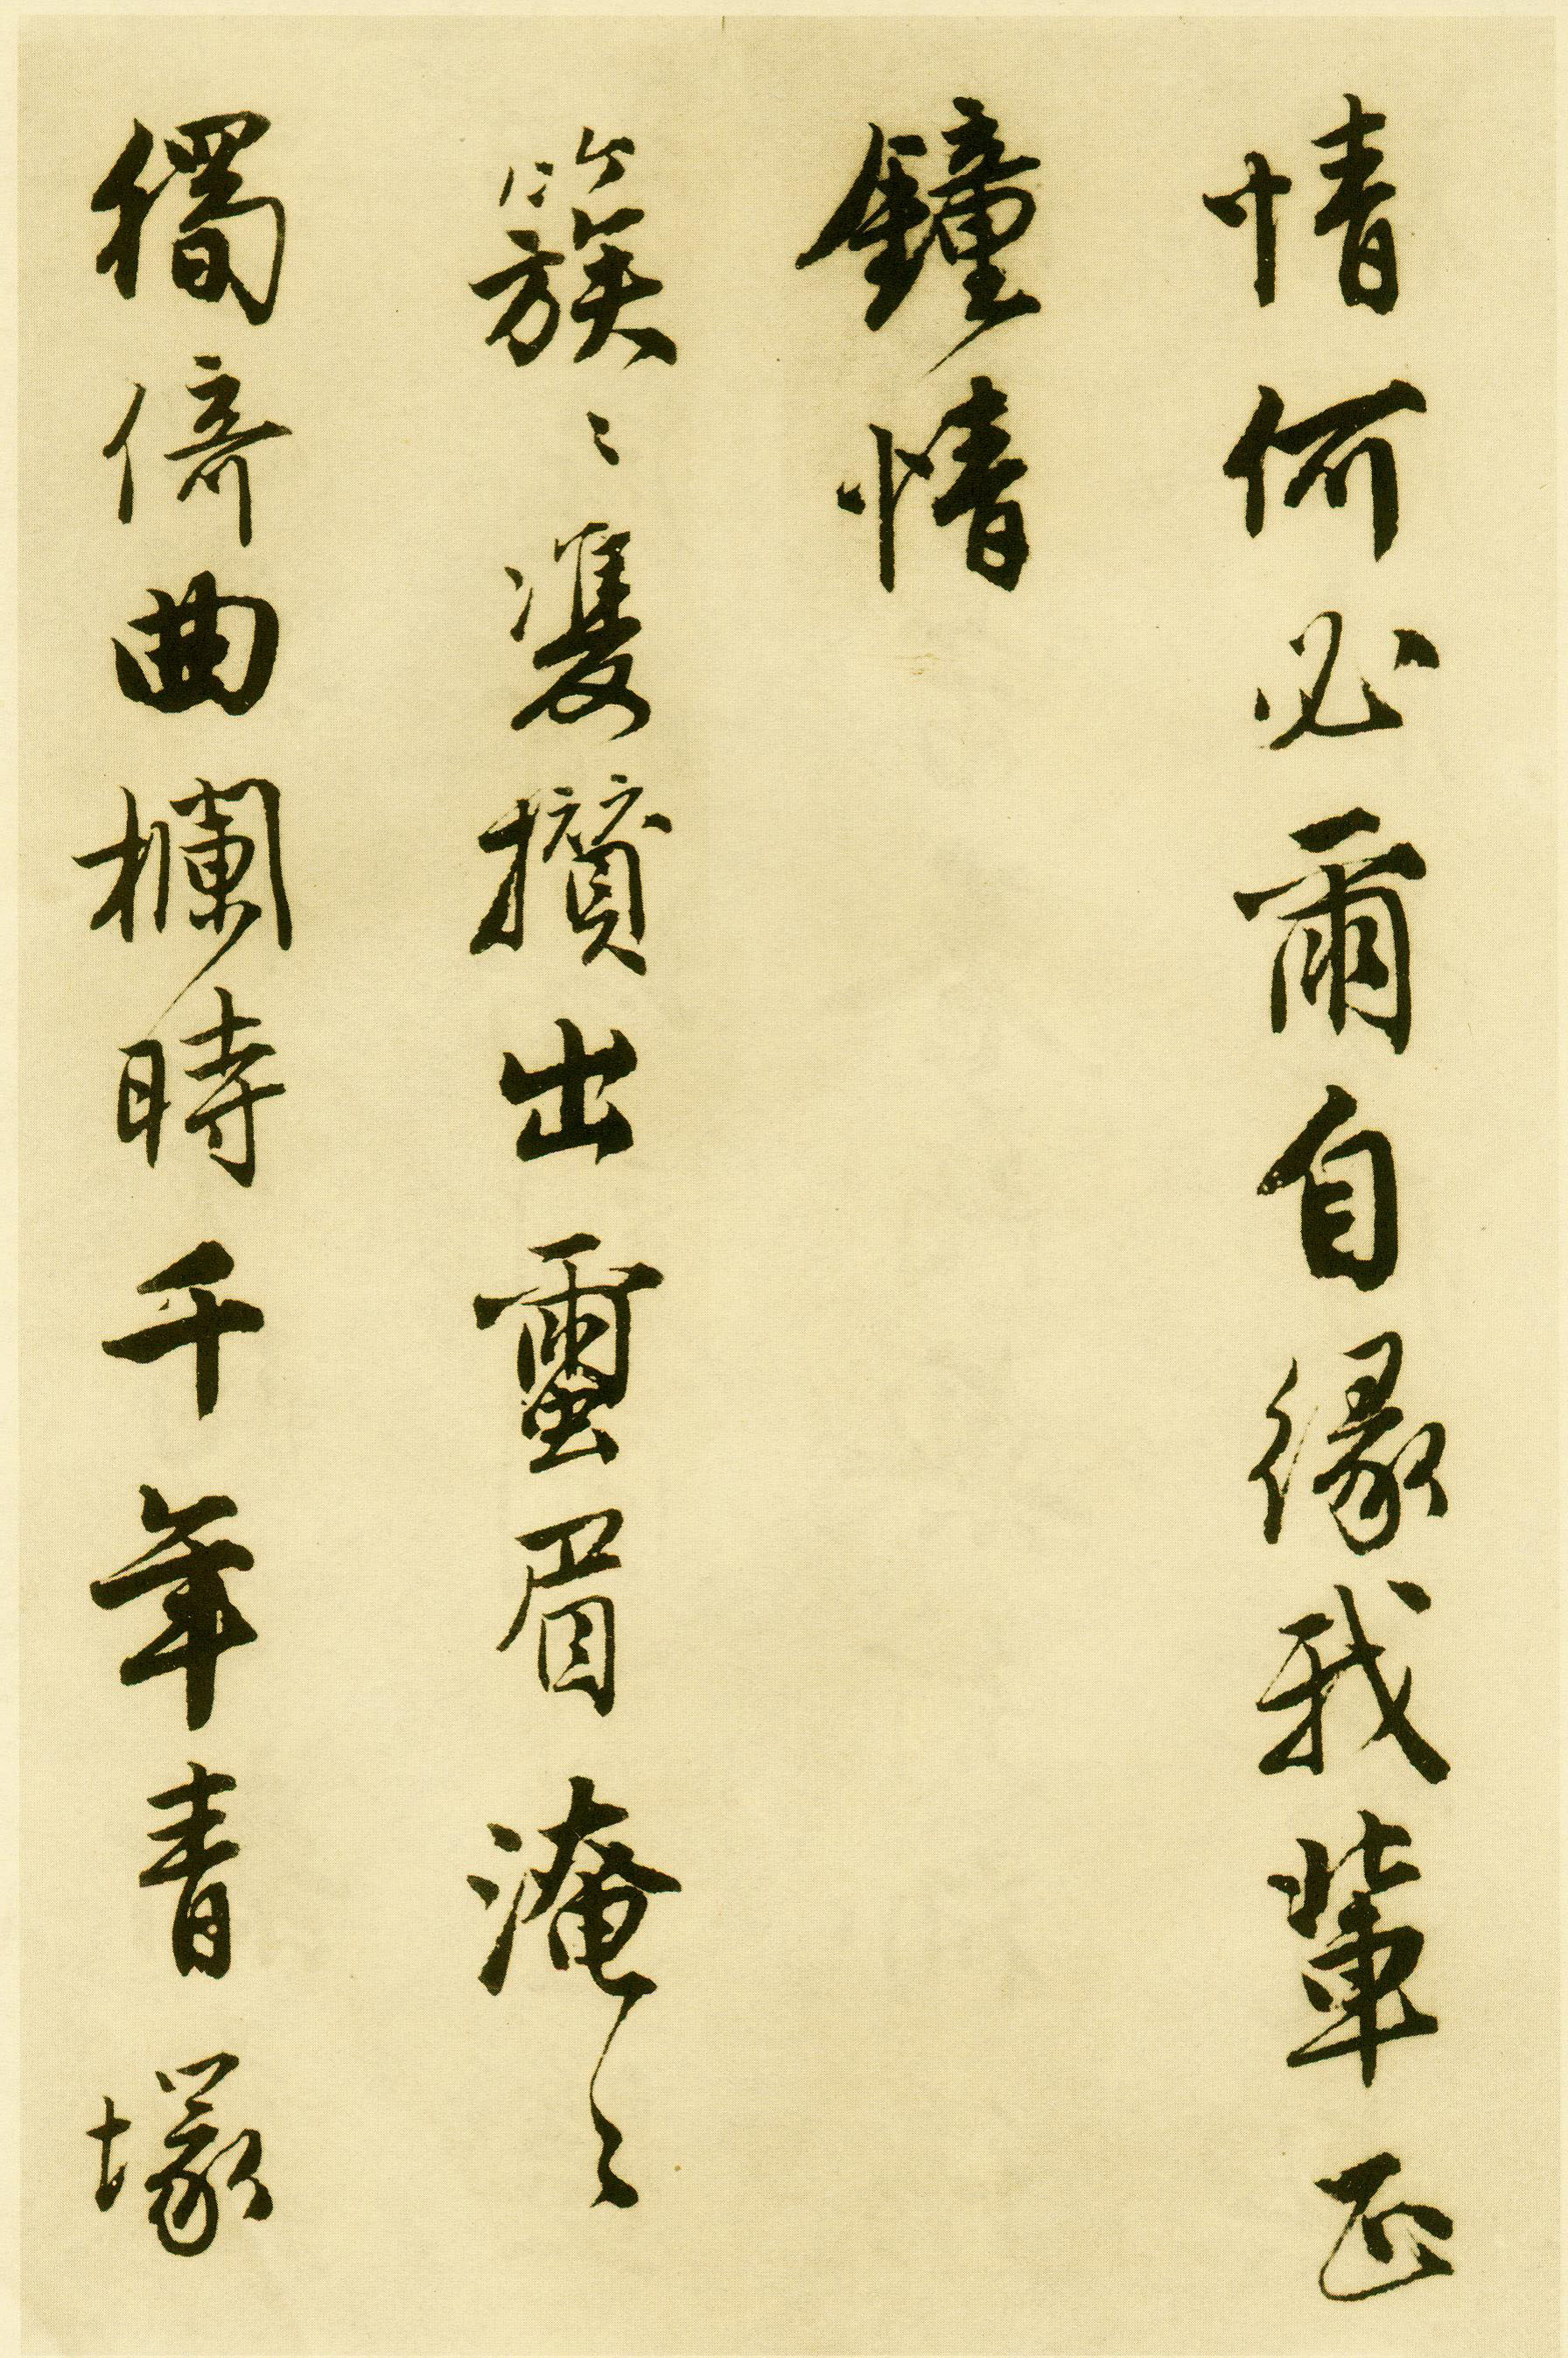 情何必爾自緣我輩正
鐘情
簇々雙攢出蠒眉淹々
獨倚曲欄時千年青塚